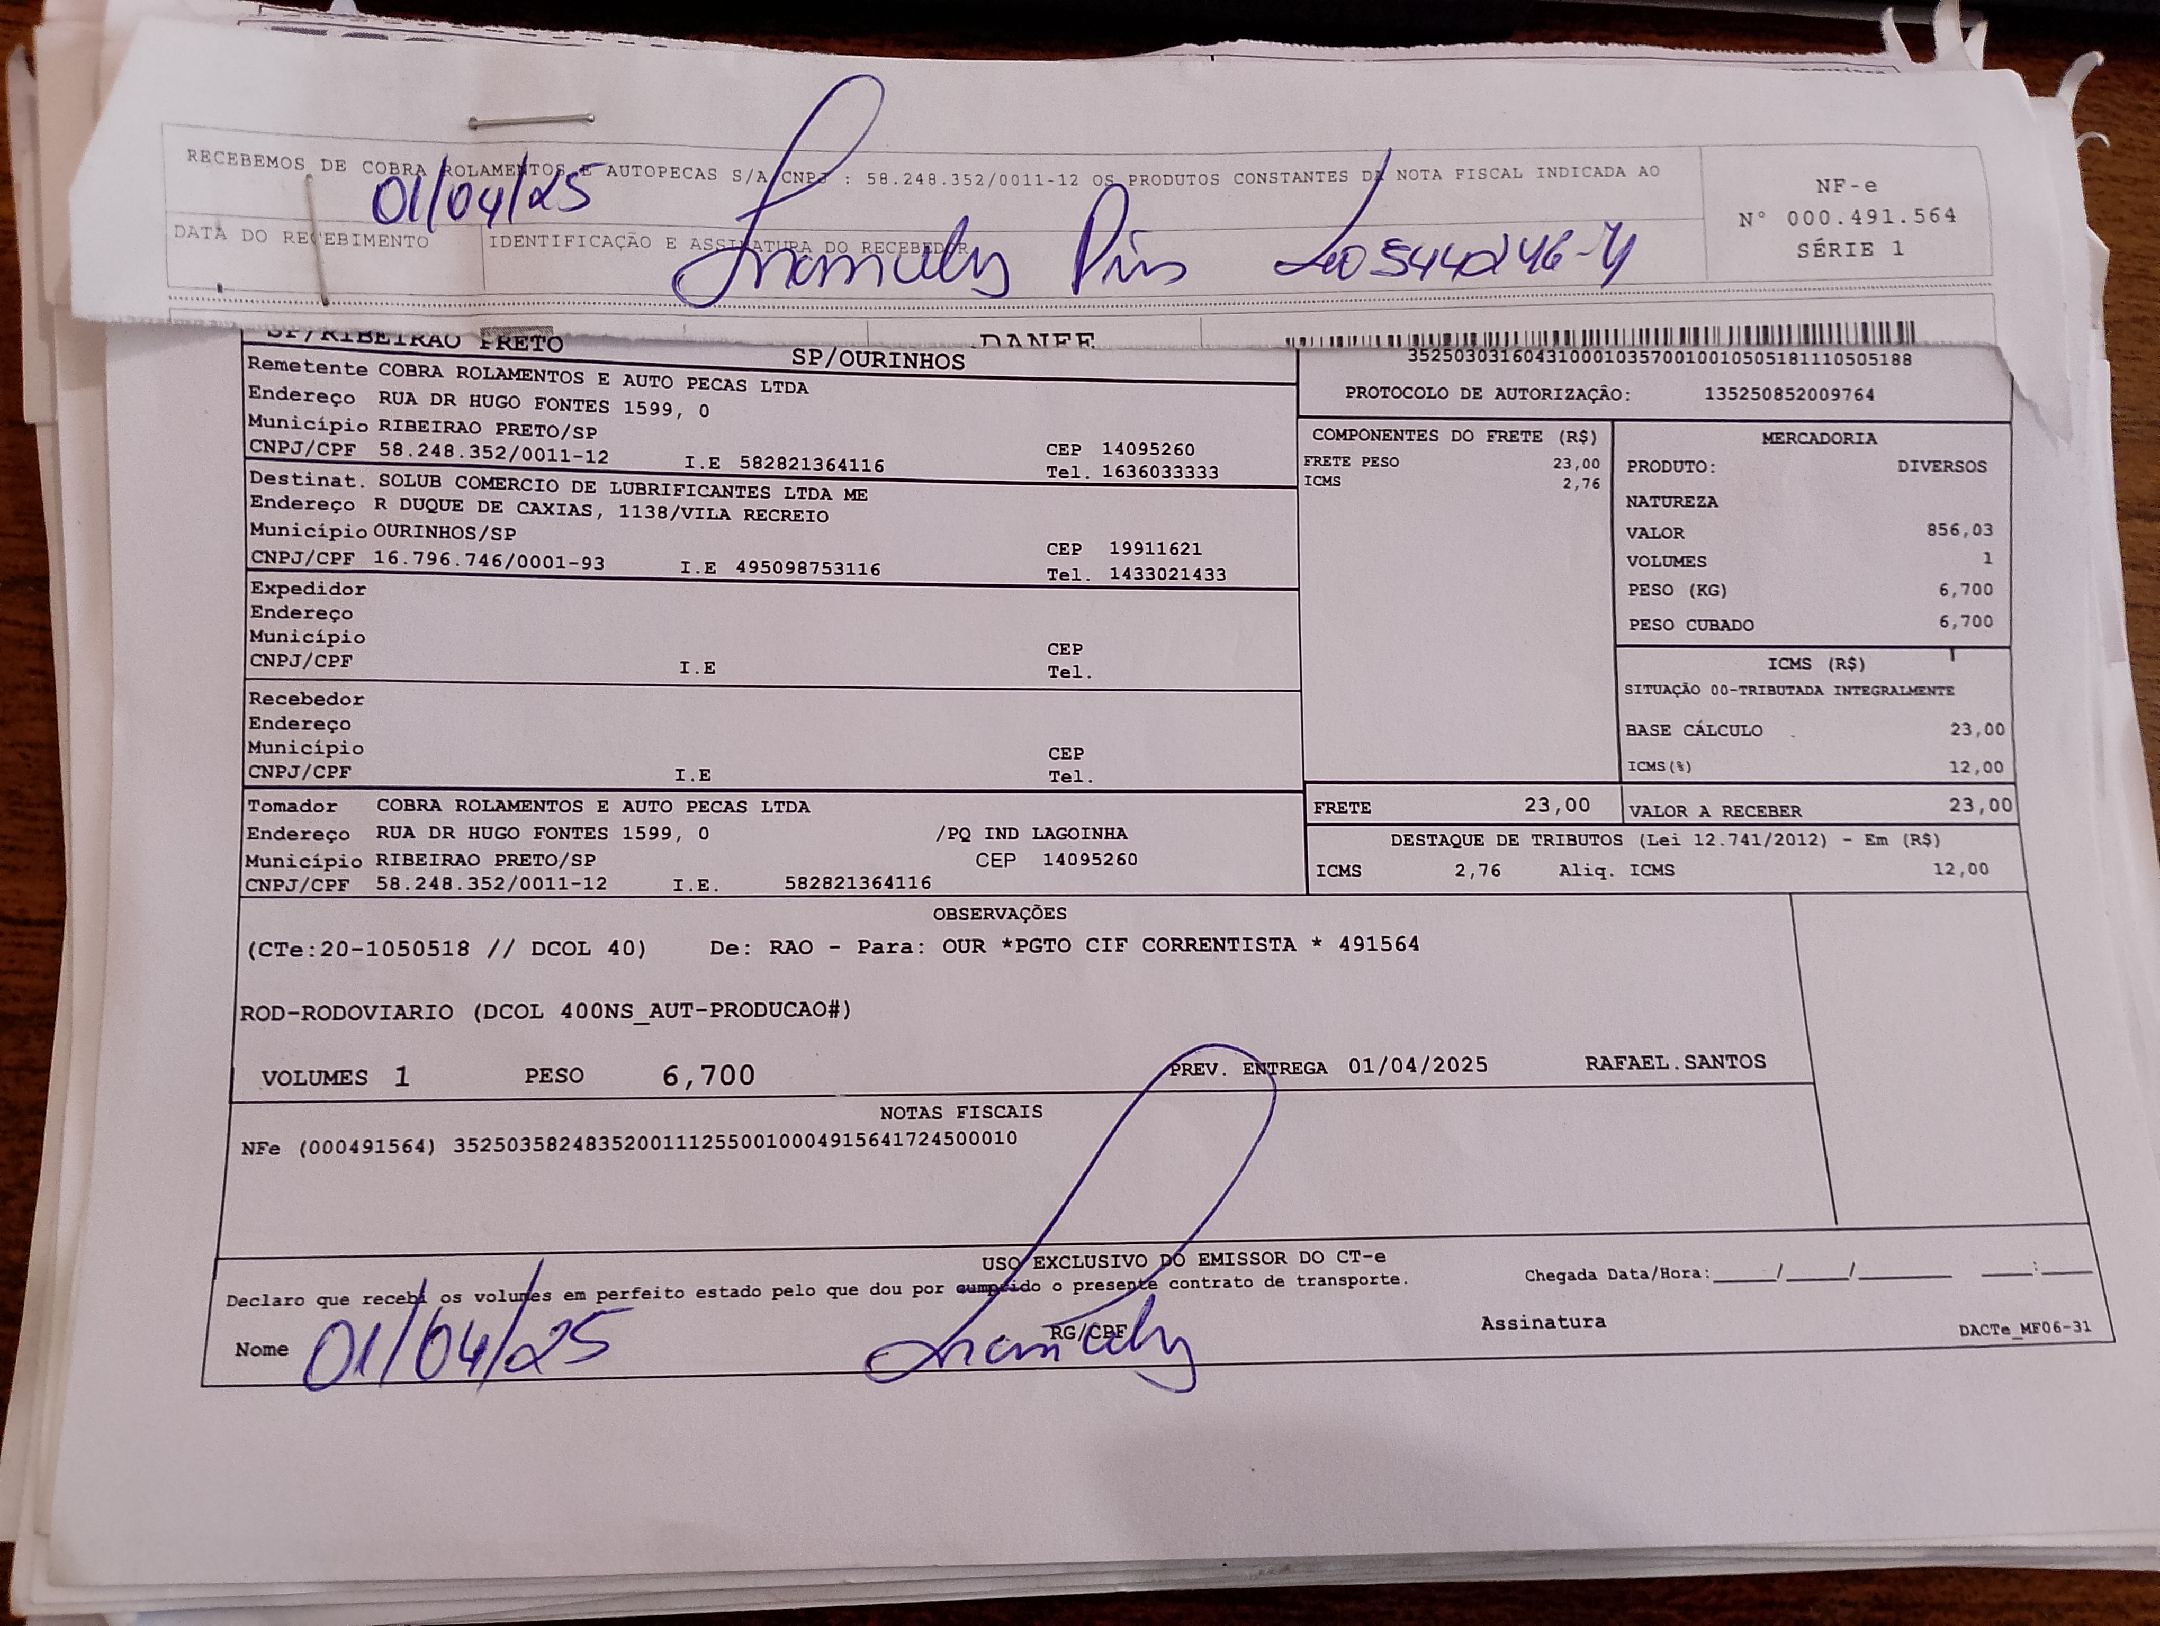 RECEBEMOS DE COBRA ROLAMENTOS E AUTOPECAS S/A CNPJ : 58.248.352/0011-12 OS PRODUTOS CONSTANTES DA NOTA FISCAL INDICADA AO
01/04/25
DATA DO RECEBIMENTO IDENTIFICAÇÃO E ASSINATURA DO RECEBEDOR
NF-e
N° 000.491.564
SÉRIE 1
SP/RIBEIRAO PRETO SP/OURINHOS DANFE
35250303160431000103570010010505181110505188
PROTOCOLO DE AUTORIZAÇÃO: 135250852009764
Remetente COBRA ROLAMENTOS E AUTO PECAS LTDA
Endereço RUA DR HUGO FONTES 1599, 0
Município RIBEIRAO PRETO/SP CEP 14095260
CNPJ/CPF 58.248.352/0011-12 I.E 582821364116 Tel. 1636033333
Destinat. SOLUB COMERCIO DE LUBRIFICANTES LTDA ME
Endereço R DUQUE DE CAXIAS, 1138/VILA RECREIO
Município OURINHOS/SP CEP 19911621
CNPJ/CPF 16.796.746/0001-93 I.E 495098753116 Tel. 1433021433
Expedidor
Endereço
Município CEP
CNPJ/CPF I.E Tel.
Recebedor
Endereço
Município CEP
CNPJ/CPF I.E Tel.
Tomador COBRA ROLAMENTOS E AUTO PECAS LTDA
Endereço RUA DR HUGO FONTES 1599, 0 /PQ IND LAGOINHA
Município RIBEIRAO PRETO/SP CEP 14095260
CNPJ/CPF 58.248.352/0011-12 I.E. 582821364116
COMPONENTES DO FRETE (R$)
FRETE PESO 23,00
ICMS 2,76
MERCADORIA
PRODUTO: DIVERSOS
NATUREZA
VALOR 856,03
VOLUMES 1
PESO (KG) 6,700
PESO CUBADO 6,700
ICMS (R$)
SITUAÇÃO 00-TRIBUTADA INTEGRALMENTE
BASE CÁLCULO 23,00
ICMS(%) 12,00
FRETE 23,00 VALOR A RECEBER 23,00
DESTAQUE DE TRIBUTOS (Lei 12.741/2012) - Em (R$)
ICMS 2,76 Aliq. ICMS 12,00
OBSERVAÇÕES
(CTe:20-1050518 // DCOL 40) De: RAO - Para: OUR *PGTO CIF CORRENTISTA * 491564
ROD-RODOVIARIO (DCOL 400NS_AUT-PRODUCAO#)
VOLUMES 1 PESO 6,700 PREV. ENTREGA 01/04/2025 RAFAEL.SANTOS
NOTAS FISCAIS
NFe (000491564) 35250358248352001112550010004915641724500010
USO EXCLUSIVO DO EMISSOR DO CT-e
Declaro que recebi os volumes em perfeito estado pelo que dou por cumprido o presente contrato de transporte. Chegada Data/Hora:____/____/______ ___:___
Nome 01/04/25 RG/CPF Assinatura DACTe_MF06-31